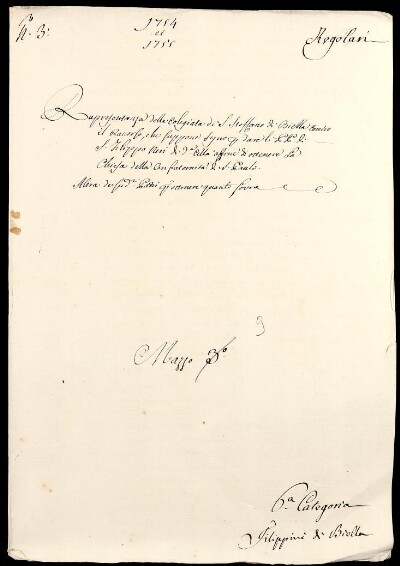 N. 3.
1754
et
1755
Regolari
Rapresentanza della Colegiata di S. Steffano di Biella contro
il Raccorso, che suppone siano p dare li P.P. di
S. Filippo Neri di d.ª Città affine di ottenere la
Chiesa della Confraternita di S. Paolo
Altra de sud.i Padri p ottenere quanto sovra
9
Mazzo 3.º
6.ª Categoria
Filippini di Biella